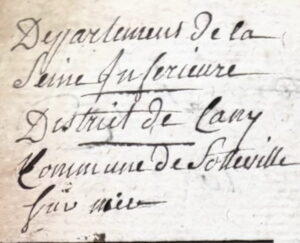 Departement de la
Seine Inferieure
District de Cany
Commune de Sotteville
sur mer